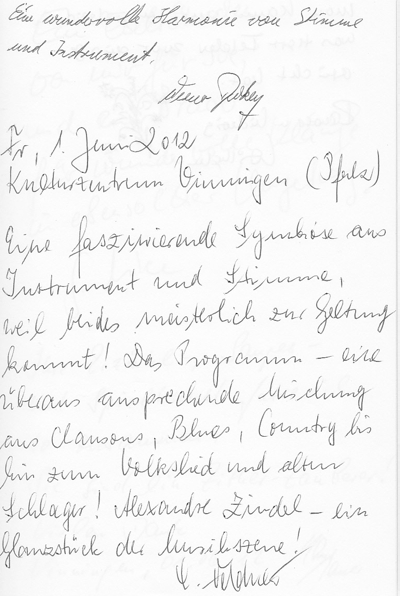 Eine wundervolle Harmonie von Stimme
und Instrument.
Fr, 1. Juni 2012
Kulturzentrum Vinningen (Pfalz)
Eine faszinierende Symbiose aus
Instrument und Stimme,
weil beides meisterlich zur Geltung
kommt! Das Programm – eine
überaus ansprechende Mischung
aus Chansons, Blues, Country bis
hin zum Volkslied und alten
Schlager! Alexandre Zindel – ein
Glanzstück der Musikszene!